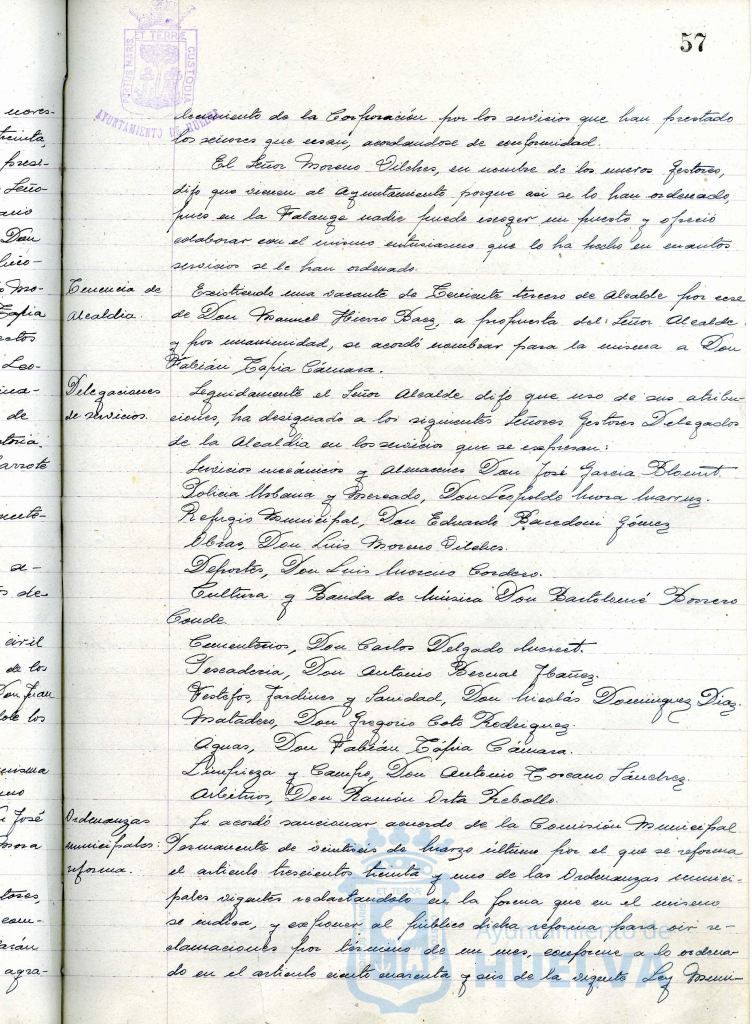 57
PORTUS MARIS ET TERRE CUSTODIA
AYUNTAMIENTO DE HUELVA
decimiento de la Corporación por los servicios que han prestado
los señores que cesan, acordandose de conformidad.
El Señor Moreno Vilches, en nombre de los nuevos Gestores,
dijo que vienen al Ayuntamiento porque asi se lo han ordenado,
pues en la Falange nadie puede escoger un puesto y ofreció
colaborar con el mismo entusiasmo que lo ha hecho en cuantos
servicios se le han ordenado.
Tenencia de
Alcaldia.
Existiendo una vacante de Teniente tercero de Alcalde por cese
de Don Manuel Hierro Baez, a propuesta del Señor Alcalde
y por unanimidad, se acordó nombrar para la misma a Don
Fabián Tapia Cámara.
Delegaciones
de servicios.
Seguidamente el Señor Alcalde dijo que uso de sus atribu-
ciones, ha designado a los siguientes Señores Gestores Delegados
de la Alcaldia en los servicios que se expresan:
Servicios mecánicos y Almacenes Don José Garcia
Policia Urbana y Mercado, Don Leopoldo Mora
Refugio Municipal, Don Eduardo Gómez
Obras, Don Luis Moreno Vilches.
Deportes, Don Luis Moreno Cordero.
Cultura y Banda de Música Don Bartolomé Borrero
Conde.
Cementerios, Don Carlos Delgado
Pescaderia, Don Antonio Bernal Ibañez.
Festejos, Jardines y Sanidad, Don Nicolás Dominguez Diaz.
Matadero, Don Gregorio Coto Rodriguez.
Aguas, Don Fabián Tápia Cámara.
Limpieza y Campo, Don Antonio Toscano Sánchez.
Arbitrios, Don Ramón Orta Rebollo.
Ordenanzas
municipales:
reforma.
Se acordó sancionar acuerdo de la Comisión Municipal
Permanente de veintiseis de Marzo último por el que se reforma
el articulo trescientos treinta y uno de las Ordenanzas munici-
pales vigentes redactandolo en la forma que en el mismo
se indica, y exponer al público dicha reforma para oir re-
clamaciones por término de un mes, conforme a lo ordena-
do en el articulo ciento cuarenta y seis de la vigente Ley Muni-
Ayuntamiento de
HUELVA